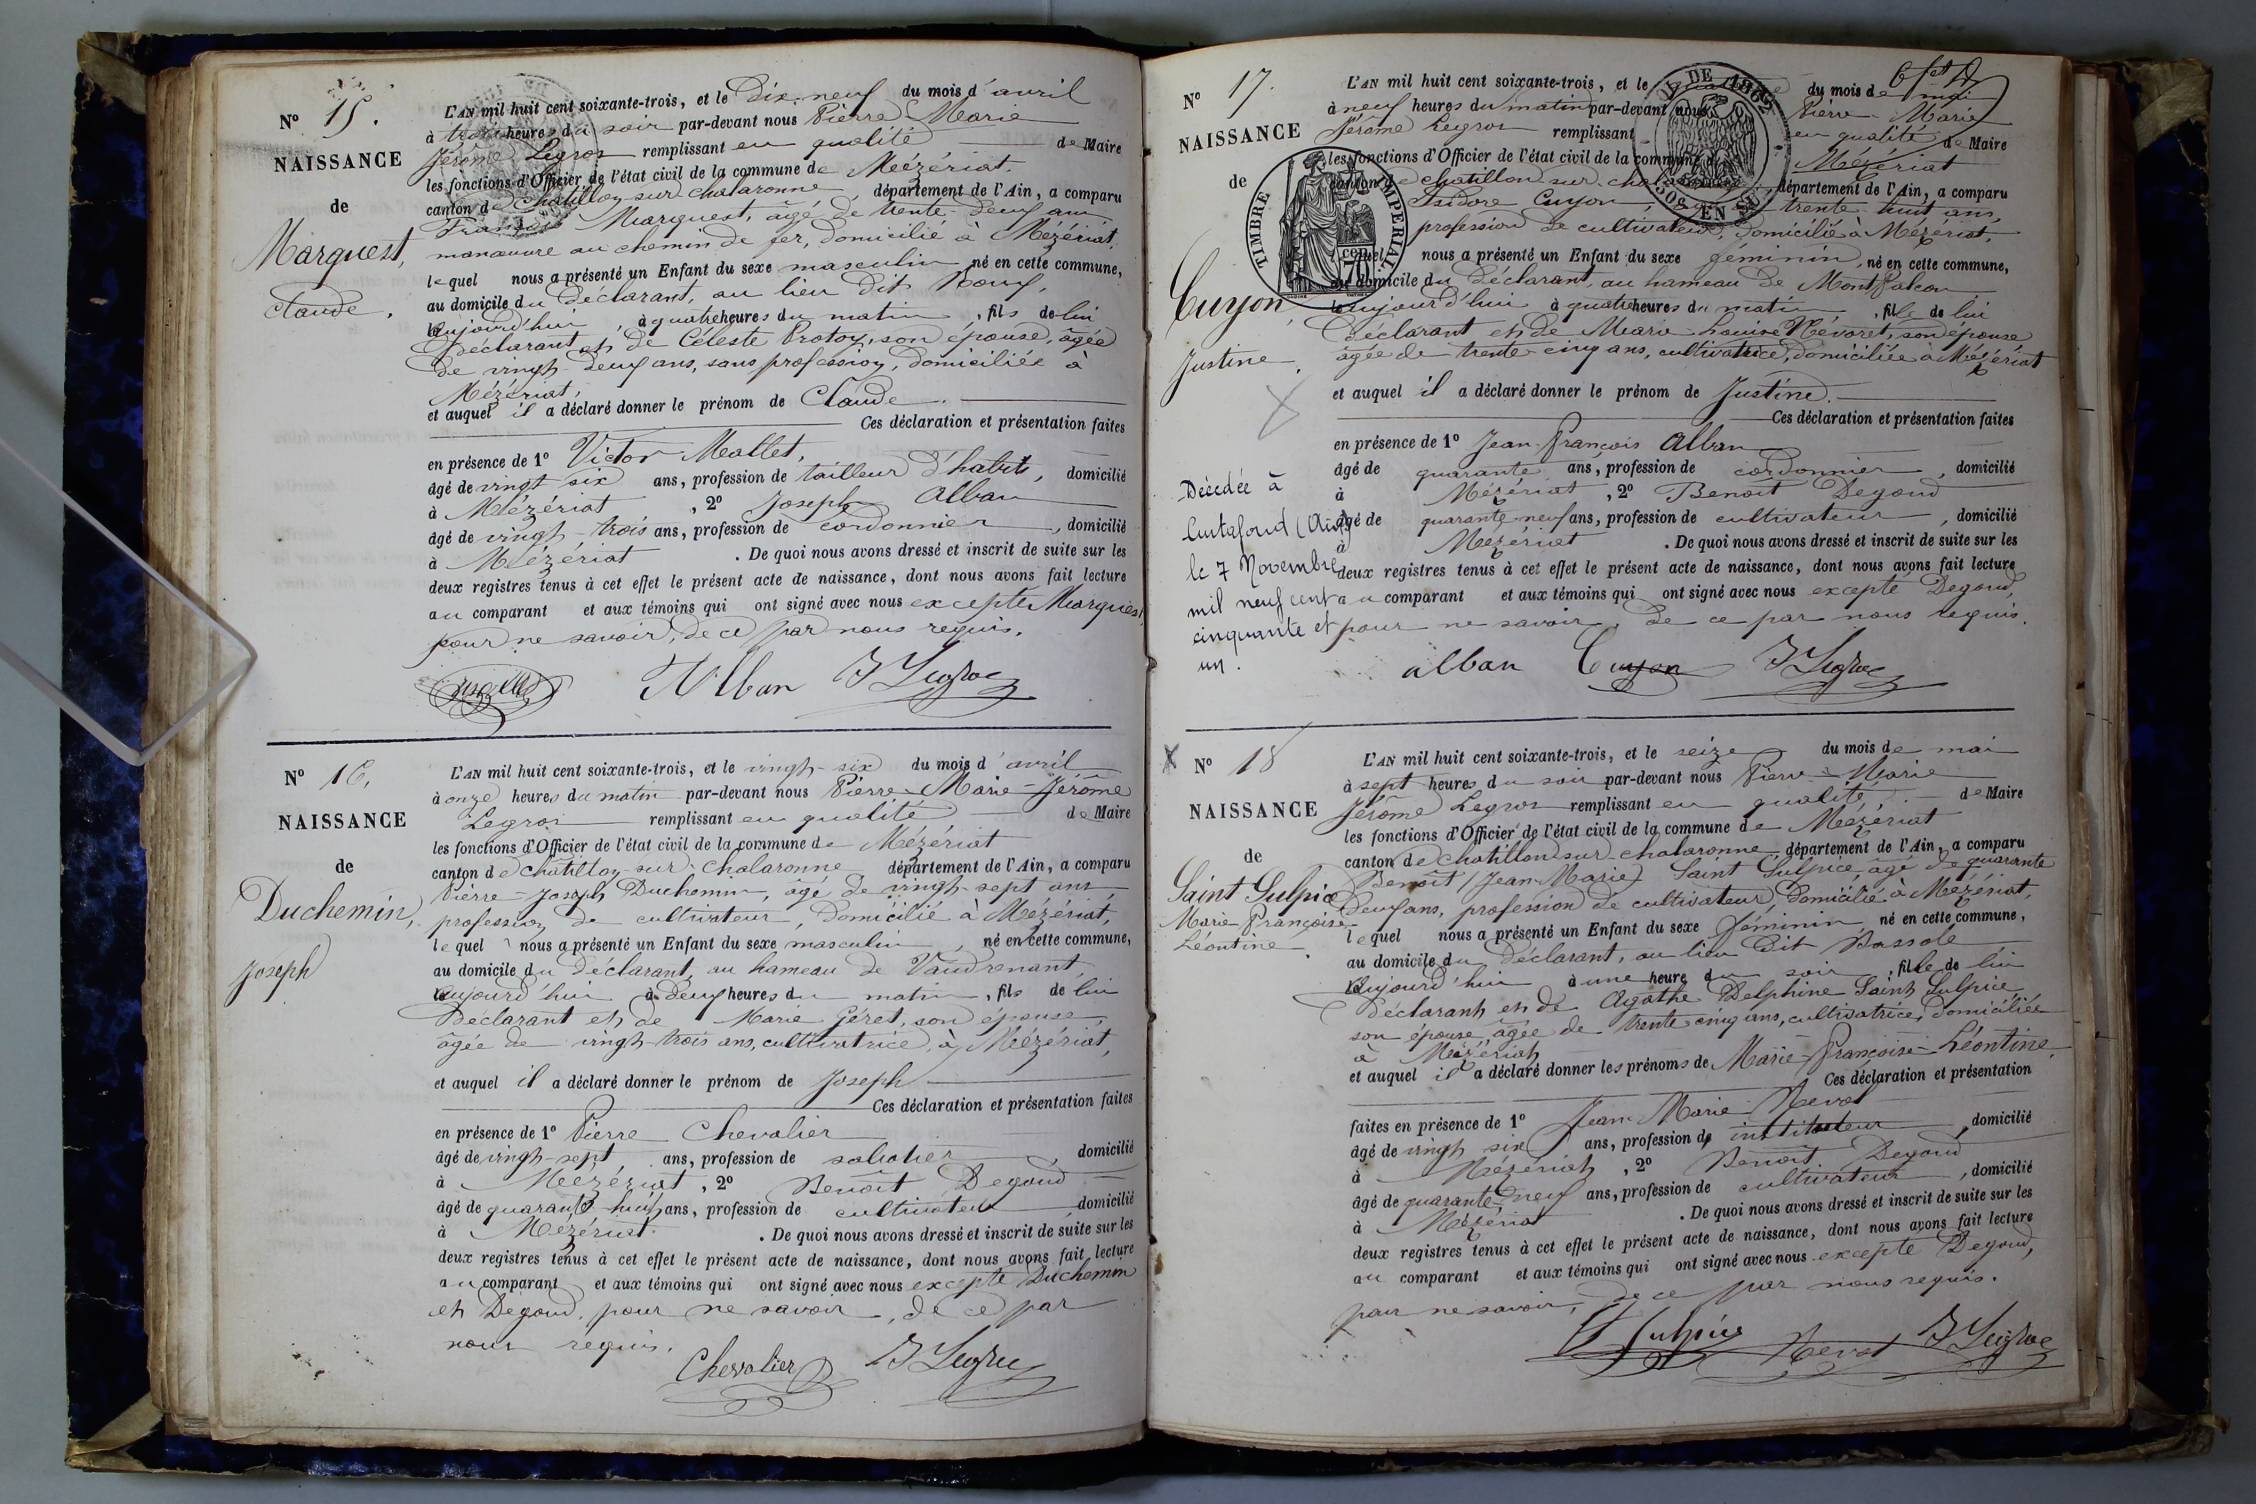 N° 15.
NAISSANCE
de
Marquest,
Claude.
L'AN mil huit cent soixante-trois, et le Dix-neuf du mois d'avril
à trois heures du soir par-devant nous Pierre-Marie
Jérôme Legros remplissant en qualité de Maire
les fonctions d'Officier de l'état civil de la commune de Mézériat.
canton de Chatillon sur chalaronne, département de l'Ain, a comparu
François Marquest, âgé de trente-deux ans,
manœuvre au chemin de fer, domicilié à Mézériat,
lequel nous a présenté un Enfant du sexe masculin, né en cette commune,
au domicile du Déclarant, au lieu dit
aujourd'hui, à quatre heures du matin, fils de lui
Déclarant et de Céleste Protoy, son épouse, âgée
de vingt-deux ans, sans profession, domiciliée à
Mézériat,
et auquel il a déclaré donner le prénom de Claude.
Ces déclaration et présentation faites
en présence de 1° Victor Mallet,
âgé de vingt six ans, profession de tailleur d'habits, domicilié
à Mézériat, 2° Joseph Alban
âgé de vingt-trois ans, profession de cordonnier, domicilié
à Mézériat. De quoi nous avons dressé et inscrit de suite sur les
deux registres tenus à cet effet le présent acte de naissance, dont nous avons fait lecture
au comparant et aux témoins qui ont signé avec nous excepté Marquest,
pour ne savoir, de ce par nous requis.
Alban J Legros
N° 16.
NAISSANCE
de
Duchemin,
Joseph
L'AN mil huit cent soixante-trois, et le vingt-six du mois d'avril
à onze heures du matin par-devant nous Pierre-Marie-Jérôme
Legros remplissant en qualité de Maire
les fonctions d'Officier de l'état civil de la commune de Mézériat
canton de chatillon-sur-Chalaronne département de l'Ain, a comparu
Pierre-Joseph Duchemin, âgé de vingt-sept ans,
profession de cultivateur, domicilié à Mézériat,
lequel nous a présenté un Enfant du sexe masculin, né en cette commune,
au domicile du déclarant, au hameau de Vaudrenant,
aujourd'hui à deux heures du matin, fils de lui
Déclarant et de Marie Géret, son épouse,
âgée de vingt-trois ans, cultivatrice, à Mézériat,
et auquel il a déclaré donner le prénom de Joseph
Ces déclaration et présentation faites
en présence de 1° Pierre Chevalier
âgé de vingt-sept ans, profession de sabotier, domicilié
à Mézériat, 2° Benoît Degoud
âgé de quarante-huit ans, profession de cultivateur domicilié
à Mézériat. De quoi nous avons dressé et inscrit de suite sur les
deux registres tenus à cet effet le présent acte de naissance, dont nous avons fait lecture
au comparant et aux témoins qui ont signé avec nous excepté Duchemin
et Degoud, pour ne savoir, de ce par
nous requis.
Chevalier J Legros
N° 17.
NAISSANCE
de
Cuyon,
Justine.
Décédée à
Curtafond (Ain)
le 7 Novembre
mil neuf cent
cinquante et
un.
TIMBRE IMPERIAL
70
DE 1863
50C EN SUS
L'AN mil huit cent soixante-trois, et le du mois de mai
à neuf heures du matin par-devant nous Pierre-Marie
Jérôme Legros remplissant en qualité de Maire
les fonctions d'Officier de l'état civil de la commune de Mézériat
canton de chatillon-sur-chalaronne, département de l'Ain, a comparu
Isidore Cuyon, trente-huit ans,
profession de cultivateur, domicilié à Mézériat,
lequel nous a présenté un Enfant du sexe féminin, né en cette commune,
au domicile du déclarant, au hameau de Montfalcon
aujourd'hui à quatre heures du matin, fille de lui
Déclarant et de Marie Louise Névoret, son épouse
âgée de trente-cinq ans, cultivatrice, domiciliée à Mézériat
et auquel il a déclaré donner le prénom de Justine.
Ces déclaration et présentation faites
en présence de 1° Jean-François Alban
âgé de quarante ans, profession de cordonnier, domicilié
à Mézériat, 2° Benoît Degoud
âgé de quarante-neuf ans, profession de cultivateur, domicilié
à Mézériat. De quoi nous avons dressé et inscrit de suite sur les
deux registres tenus à cet effet le présent acte de naissance, dont nous avons fait lecture
au comparant et aux témoins qui ont signé avec nous excepté Degoud,
pour ne savoir, de ce par nous requis.
alban Cuyon J Legros
N° 18
NAISSANCE
de
Saint Sulpice
Marie-Françoise-
Léontine.
L'AN mil huit cent soixante-trois, et le seize du mois de mai
à sept heures du soir par-devant nous Pierre-Marie
Jérôme Legros remplissant en qualité, de Maire
les fonctions d'Officier de l'état civil de la commune de Mézériat
canton de chatillon sur chalaronne, département de l'Ain, a comparu
Benoît (Jean-Marie) Saint Sulpice, âgé de quarante
deux ans, profession de cultivateur, domicilié à Mézériat,
lequel nous a présenté un Enfant du sexe féminin, né en cette commune,
au domicile du Déclarant, au lieu dit
aujourd'hui à une heure du soir, fille de lui
déclarant et de Agathe Delphine Saint Sulpice,
son épouse, âgée de trente cinq ans, cultivatrice, domiciliée
à Mézériat
et auquel il a déclaré donner les prénoms de Marie-Françoise-Léontine.
Ces déclaration et présentation
faites en présence de 1° Jean-Marie Nevot
âgé de vingt six ans, profession de instituteur, domicilié
à Mézériat, 2° Benoît Degoud
âgé de quarante-neuf ans, profession de cultivateur, domicilié
à Mézériat. De quoi nous avons dressé et inscrit de suite sur les
deux registres tenus à cet effet le présent acte de naissance, dont nous avons fait lecture
au comparant et aux témoins qui ont signé avec nous excepté Degoud,
pour ne savoir, de ce par nous requis.
St Sulpice Nevot J Legros